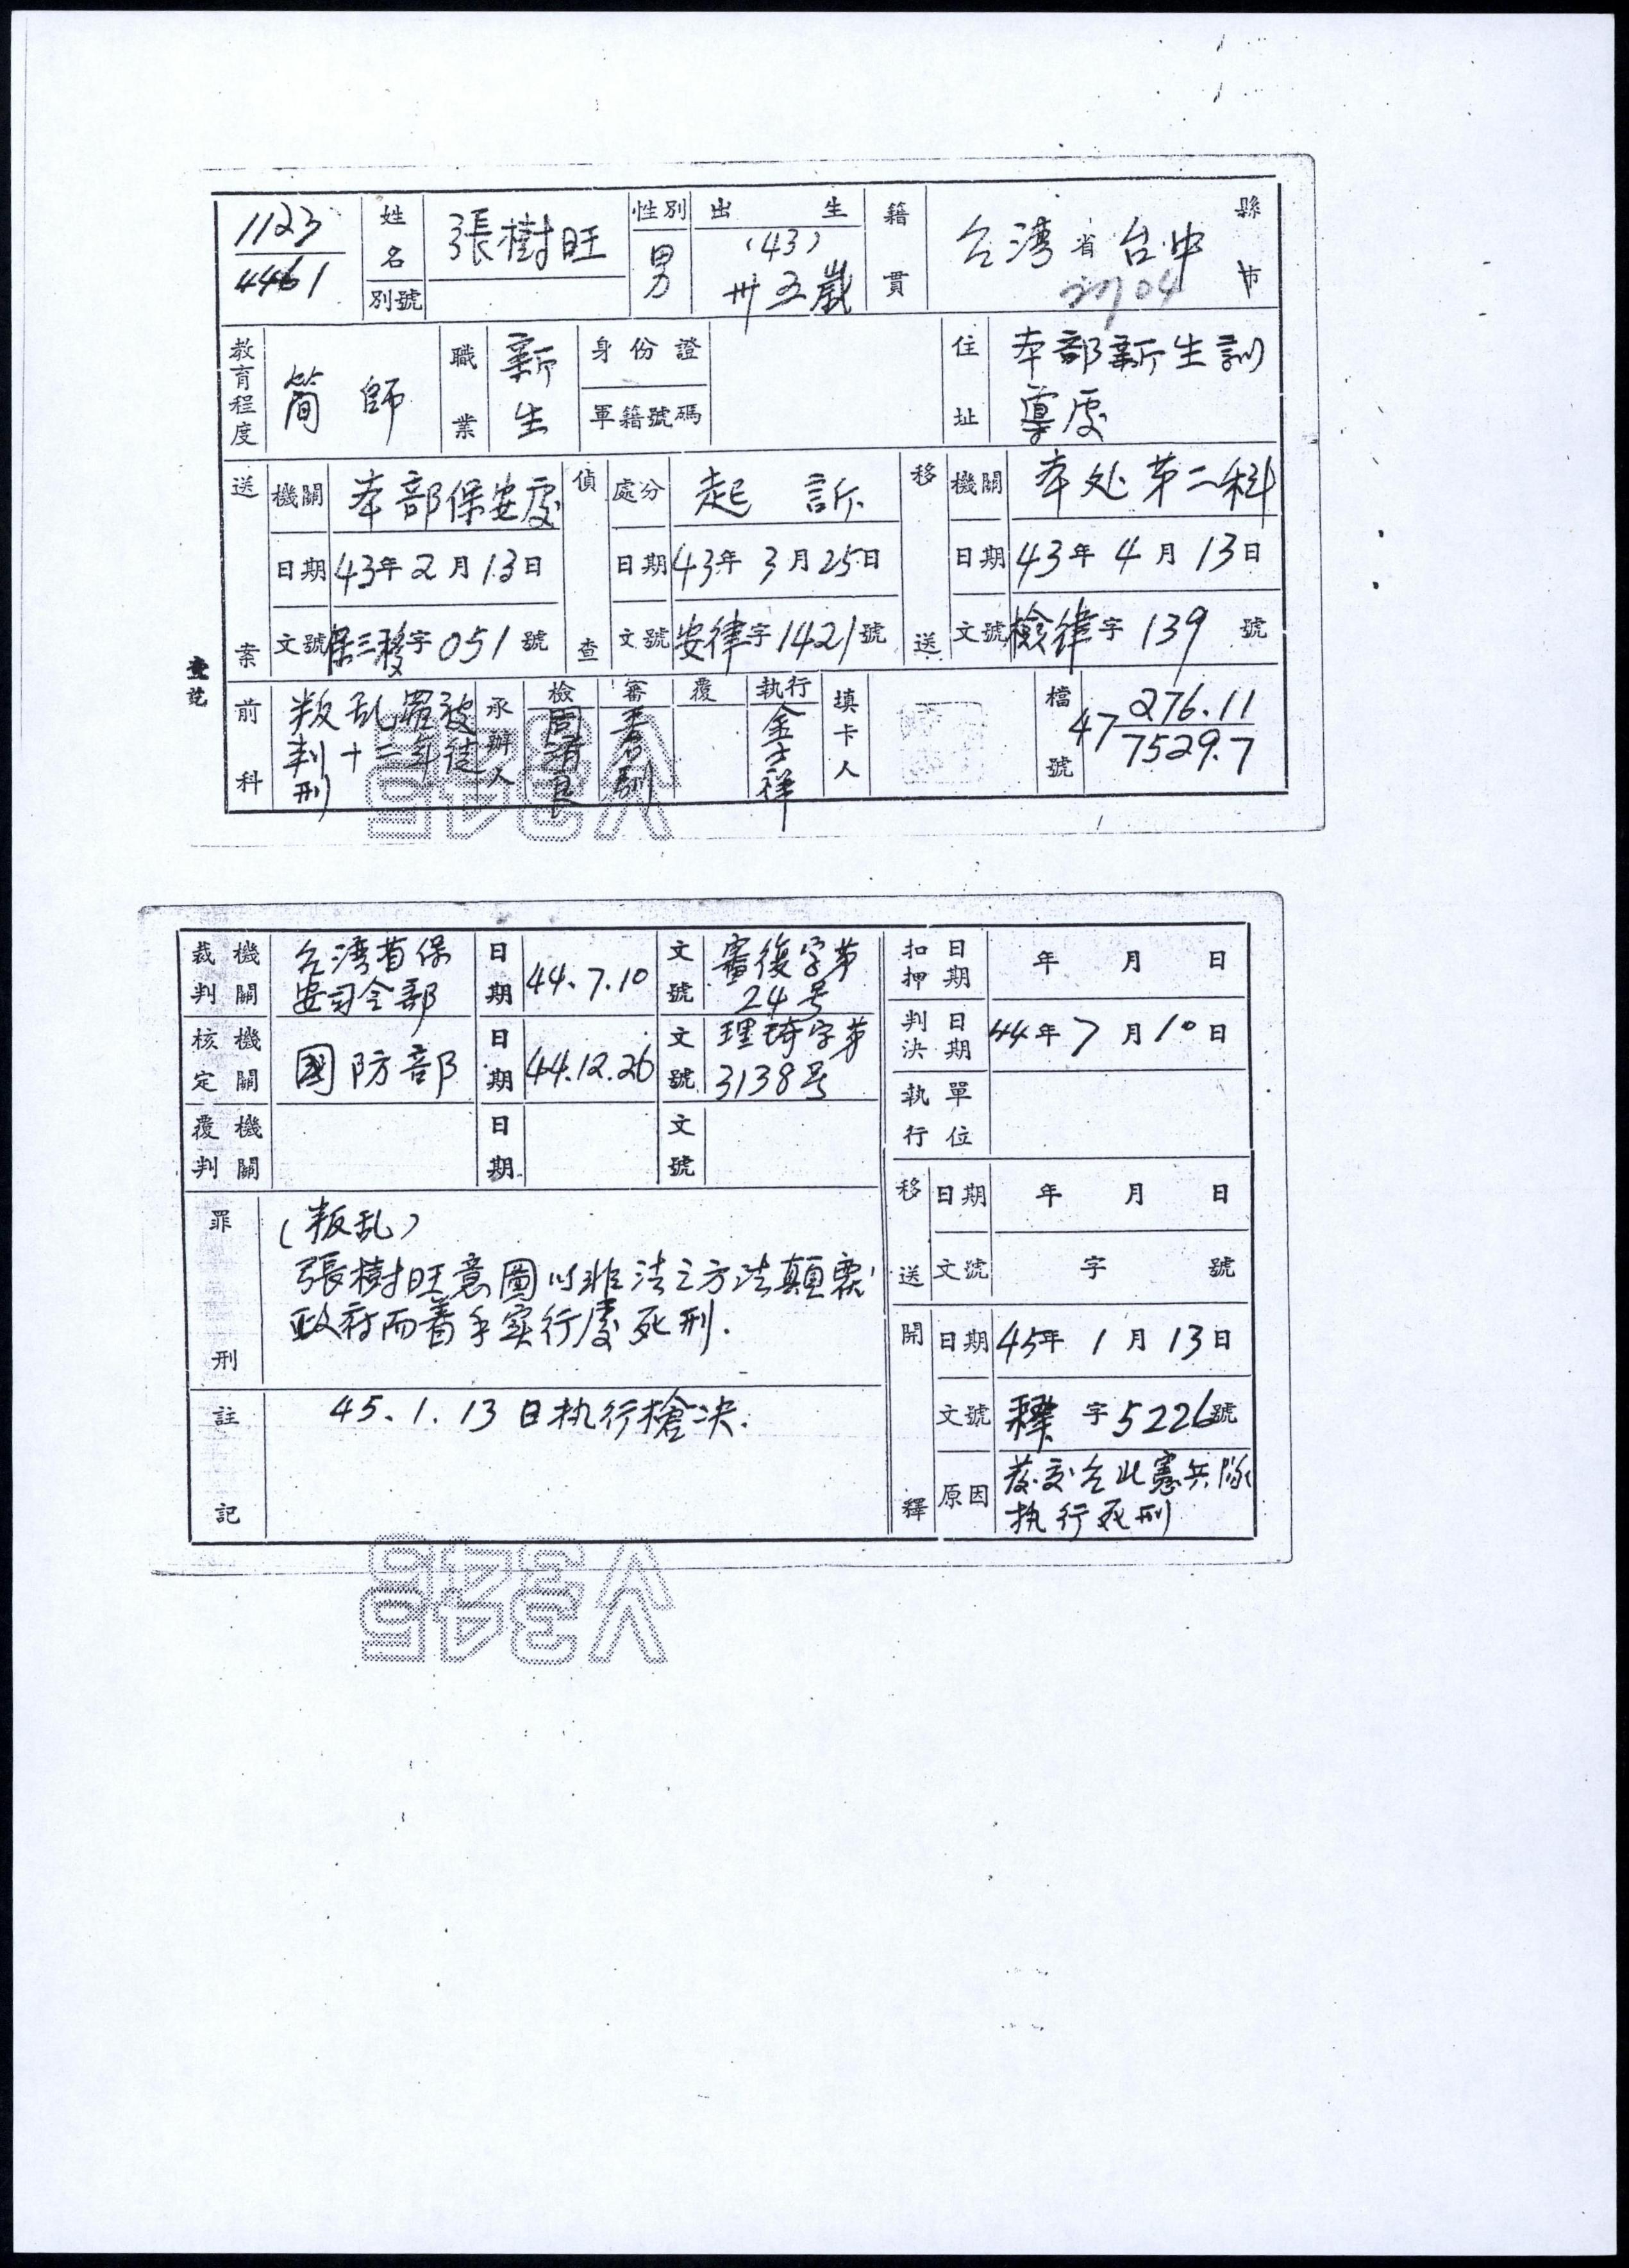 1123
4461
姓名 張樹旺
別號
性別 男
出生 (43) 卅五歲
籍貫 台湾省台中縣市
04
教育程度 簡師
職業 新生
身份證
軍籍號碼
住址 本部新生訓
導處
送案 機關 本部保安處
日期 43年2月13日
文號 保三移字051號
偵查 處分 起訴
日期 43年3月25日
文號 安律字1421號
移送 機關 本处第二科
日期 43年4月13日
文號 檢律字139號
前科 叛乱罪被
判十二年徒
刑
承辦人
檢 周清良
審
覆
執行 金士祥
填卡人
檔號 47 276.11
7529.7
裁判機關 台湾省保
安司令部
日期 44.7.10
文號 審復字第
24号
扣押日期 年月日
核定機關 國防部
日期 44.12.26
文號 理琦字第
3138号
判決日期 44年7月10日
覆判機關
日期
文號
執行單位
移送 日期 年月日
文號 字號
罪刑 (叛乱)
張樹旺意圖以非法之方法顛覆
政府而著手实行處死刑.
開釋 日期 45年1月13日
文號 釋字5226號
原因 發交台北憲兵隊
执行死刑
註記 45.1.13日执行槍决.